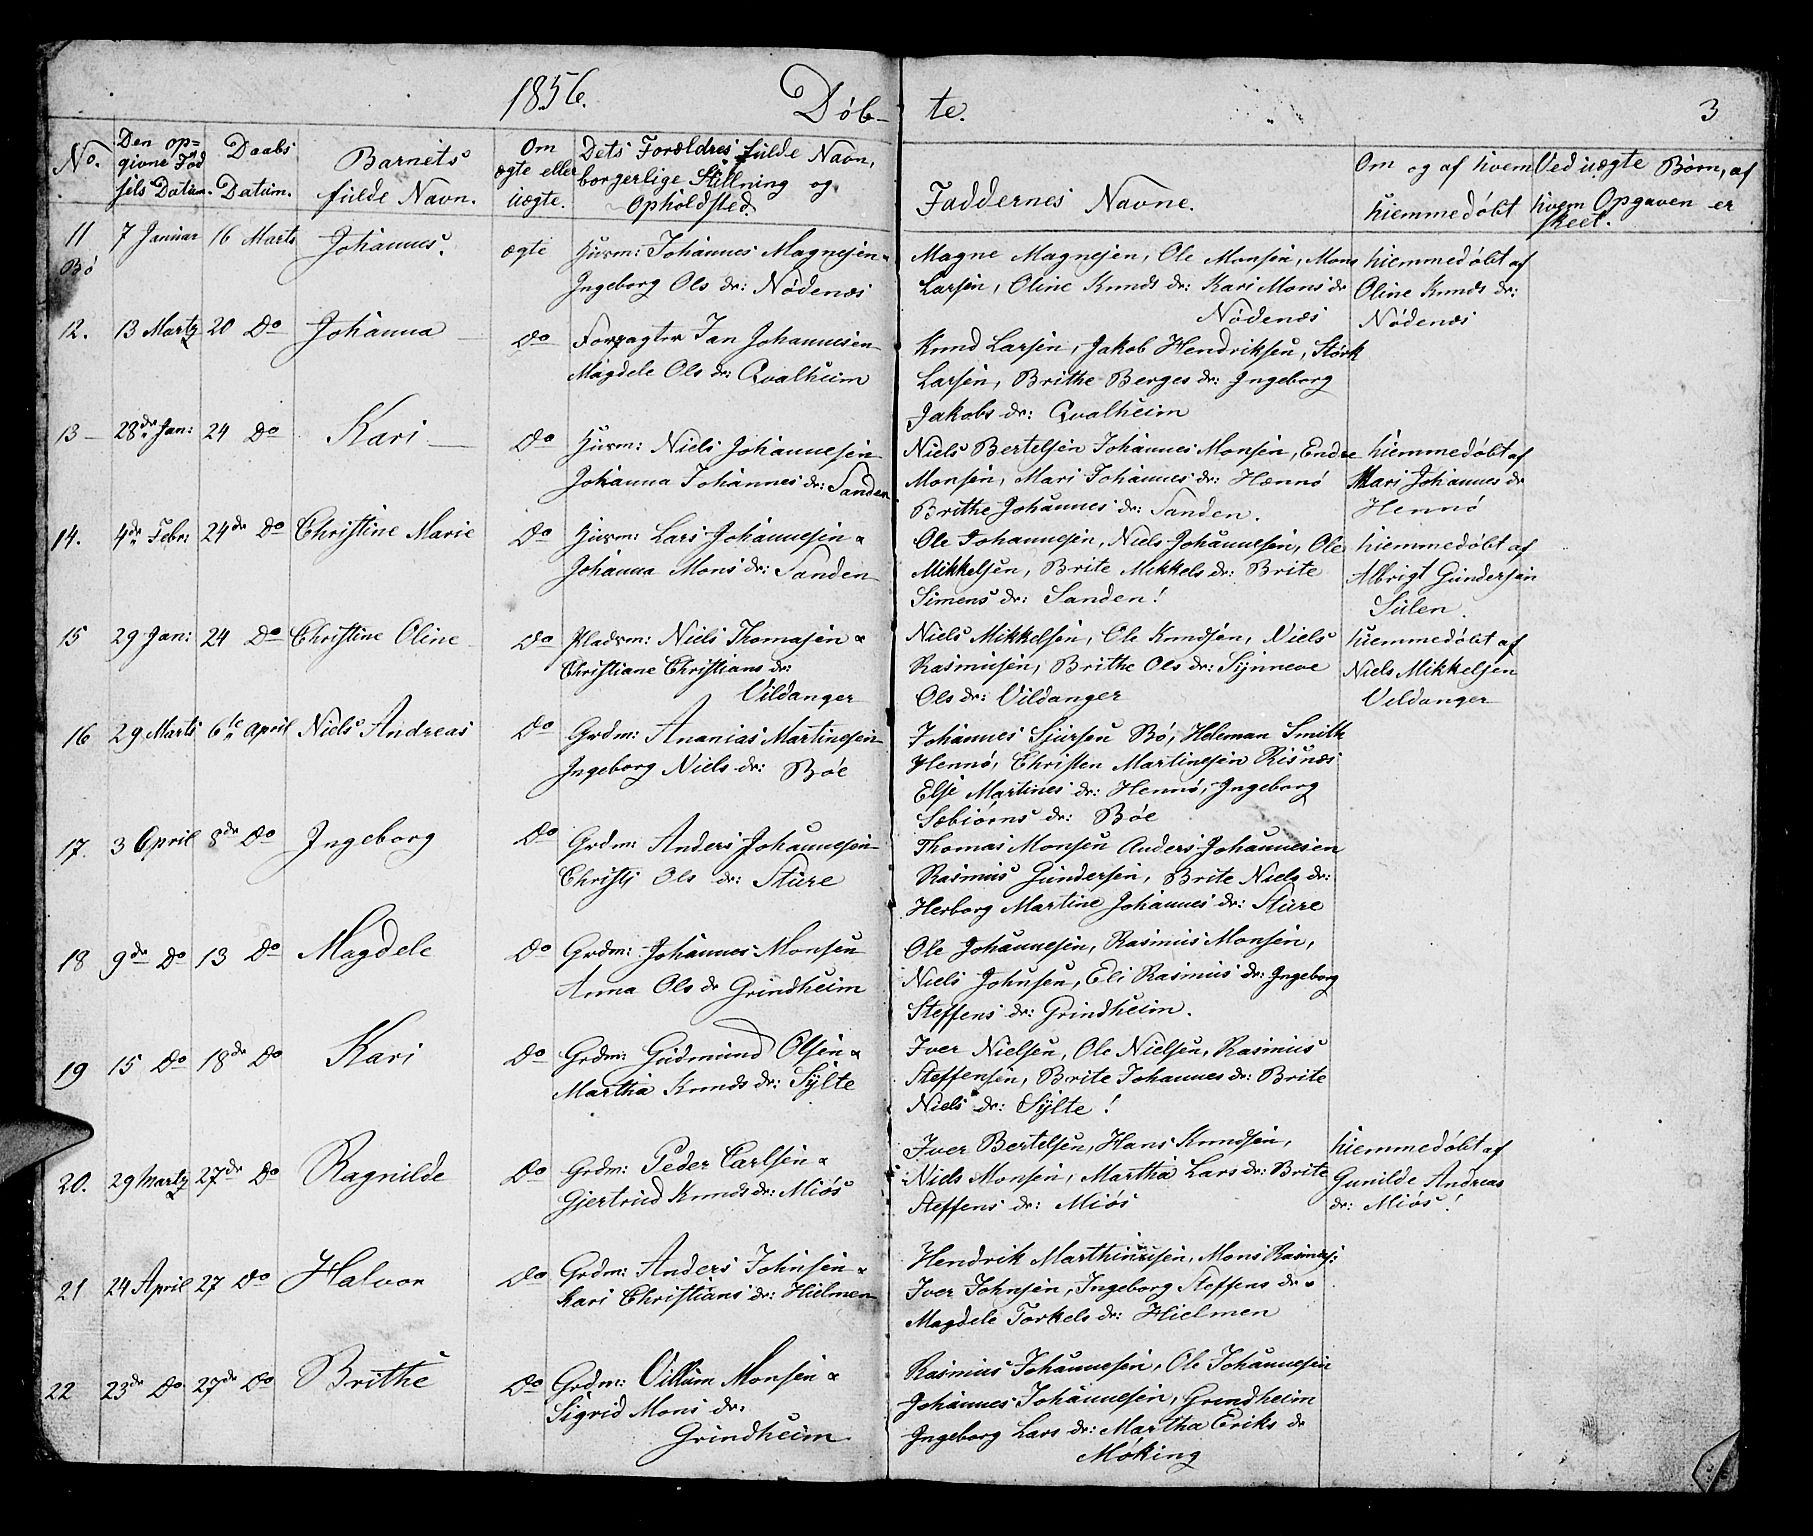 1856.
Døb-
te.
3
No.
Den op=
givne Fød
sels Datum.
Daabs
Datum.
Barnets
fulde Navn.
Om
ægte eller
uægte.
Dets Forældres fulde Navn,
borgerlige Stillning og
Opholdsted.
Faddernes Navne.
Om og af hvem
hiemmedøbt
Ved uægte Børn, af
hvem Opgaven er
skeet.
11
Bø
7 Januar
16 Marts
Johannes.
ægte
Huvm: Johannes Magnesen &
Ingeborg Ols dr: Nødenæs
Magne Magnesen, Ole Monsen, Mons
Larsen, Oline Knuds dr: Kari Mons dr
Nødenæs
hiemmedøbt af
Oline Knuds dr:
Nødenæs
12.
13 Marts
20 Do
Johanna
Do
Forpagter Jan Johannesen
Magdele Ols dr: Qvalheim
Knud Larsen, Jakob Hendriksen, Størk
Larsen, Brithe Berges dr: Ingeborg
Jakobs dr: Qvalheim
13
28de Jan:
24 Do
Kari
Do
Huvm: Niels Johannesen
Johanna Johannes dr: Sanden
Niels Bertelsen Johannes Monsen, Endre
Monsen, Mari Johannes dr: Hennø
Brithe Johannes dr: Sanden.
hiemmedøbt af
Mari Johannes dr
Hennø
14.
4de Febr:
24de Do
Christine Marie
Do
Huvm: Lars Johannesen &
Johanna Mons dr: Sanden
Ole Johannesen, Niels Johannesen, Ole
Mikkelsen, Brite Mikkels dr: Brite
Simens dr: Sanden!
hiemmedøbt af
Albrigt Gundersen
Sulen
15
29 Jan:
24 Do
Christine Oline
Do
Pladsm: Niels Thomasen &
Christiane Christians dr:
Vildanger
Niels Mikkelsen, Ole Knudsen, Niels
Rasmusen, Brithe Ols dr: Synneve
Ols dr: Vildanger
hiemmedøbt af
Niels Mikkelsen
Veldanger
16
29 Marts
6te April
Niels Andreas
Do
Grdm: Ananias Martinesen
Ingeborg Niels dr: Bøe
Johannes Sjursen Bø, Heleman Smith
Hennø, Christen Martinesen Risnæs
Else Martines dr: Hennø, Ingeborg
Sæbiørns dr: Bøe
17.
3 April
8de Do
Ingeborg
Do
Grdm: Anders Johannesen
Christi Ols dr: Sture
Thomas Monsen Anders Johannesen
Rasmus Gundersen, Brite Niels dr:
Herborg Martine Johannes dr: Sture
18
9de Do
13 Do
Magdele
Do
Grdm: Johannes Monsen
Anna Ols dr Grindheim
Ole Johannesen, Rasmus Monsen,
Niels Johnsen, Eli Rasmus dr: Ingeborg
Steffens dr: Grindheim.
19
15 Do
18de Do
Kari
Do
Grdm: Gudmund Olsen &
Martha Knuds dr: Sylte
Iver Nielsen, Ole Nielsen, Rasmus
Steffensen, Brite Johannes dr: Brite
Niels dr: Sylte!
20.
29 Marts
27de Do
Ragnilde
Do
Grdm: Peder Carlsen &
Gjertrud Knuds dr: Miøs
Iver Bertelsen, Hans Knudsen,
Niels Monsen, Martha Lars dr: Brite
Steffens dr: Miøs
hiemmedøbt af
Gunilde Andreas
dr: Miøs!
21
24 April
27 Do
Halvor
Do
Grdm: Anders Johnsen &
Kari Christians dr: Hielmen
Hendrik Marthinusen, Mons Rasmus:
Iver Johnsen, Ingeborg Steffens dr
Magdele Torkels dr: Hielmen
22
23de Do
27de Do
Brithe
Do
Grdm: Villum Monsen &
Sigrid Mons dr:
Grindheim
Rasmus Johannesen, Ole Johannesen
Johannes Johannesen, Grindheim
Ingeborg Lars dr: Martha Eriks dr
Møking